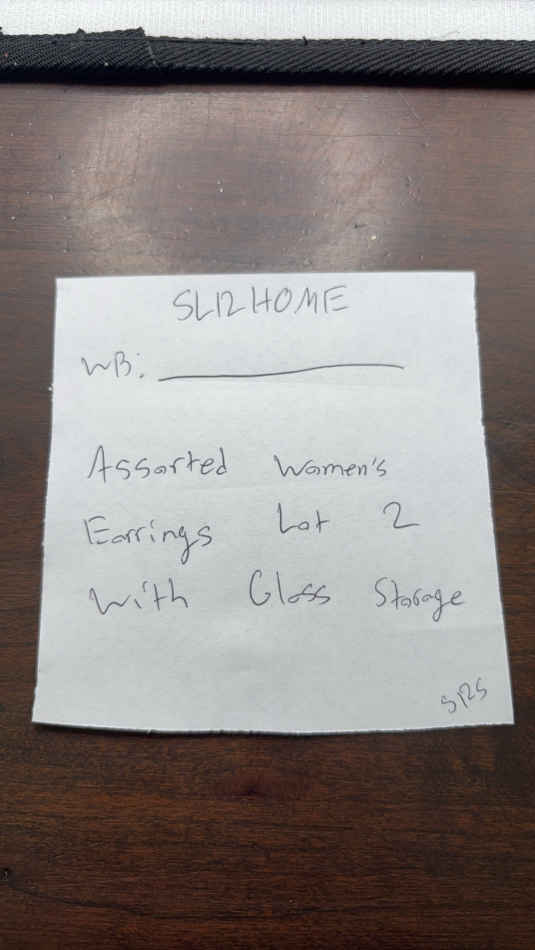 SL12HOME
WB:
Assorted Women's
Earrings Lot 2
With Glass Storage
SRS